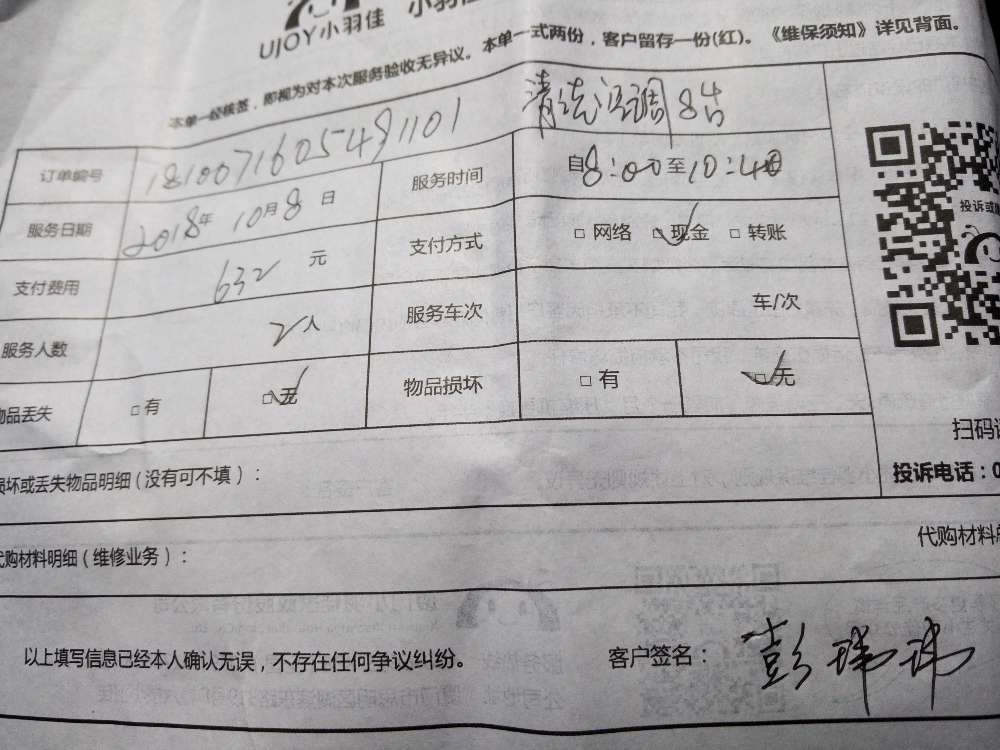 UJOY小羽佳 小羽佳
本单一经核签，即视为对本次服务验收无异议。本单一式两份，客户留存一份(红)。《维保须知》详见背面。
清洗空调8台
订单编号 1810071605491101 服务时间 自8:00至10:40
服务日期 2018年10月8日 支付方式 □网络 □现金 □转账
支付费用 632元
服务人数 2人 服务车次 车/次
物品丢失 □有 □无 物品损坏 □有 □无
投诉或
扫码
损坏或丢失物品明细(没有可不填)：
投诉电话：0
代购材料明细(维修业务)： 代购材料
以上填写信息已经本人确认无误，不存在任何争议纠纷。 客户签名：彭琳琳